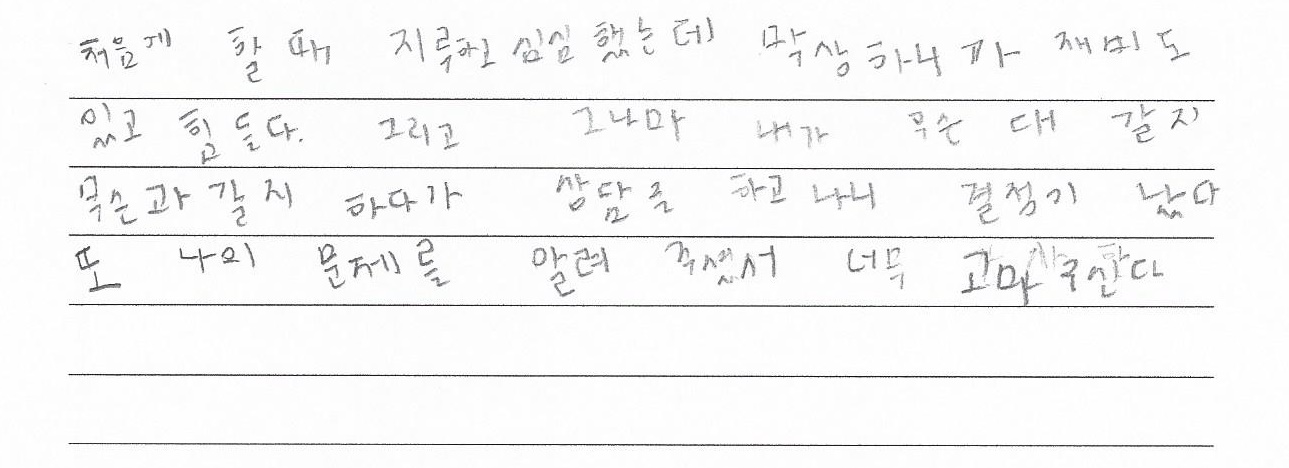 처음게 할 때 지루하고 심심했는데 막상 하니까 재비도
있고 힘들다. 그리고 그나마 내가 무슨 대 갈지
무슨과 갈지 하다가 상담을 하고 나니 결정기 났다
또 나의 문제를 알려 주셨서 너무